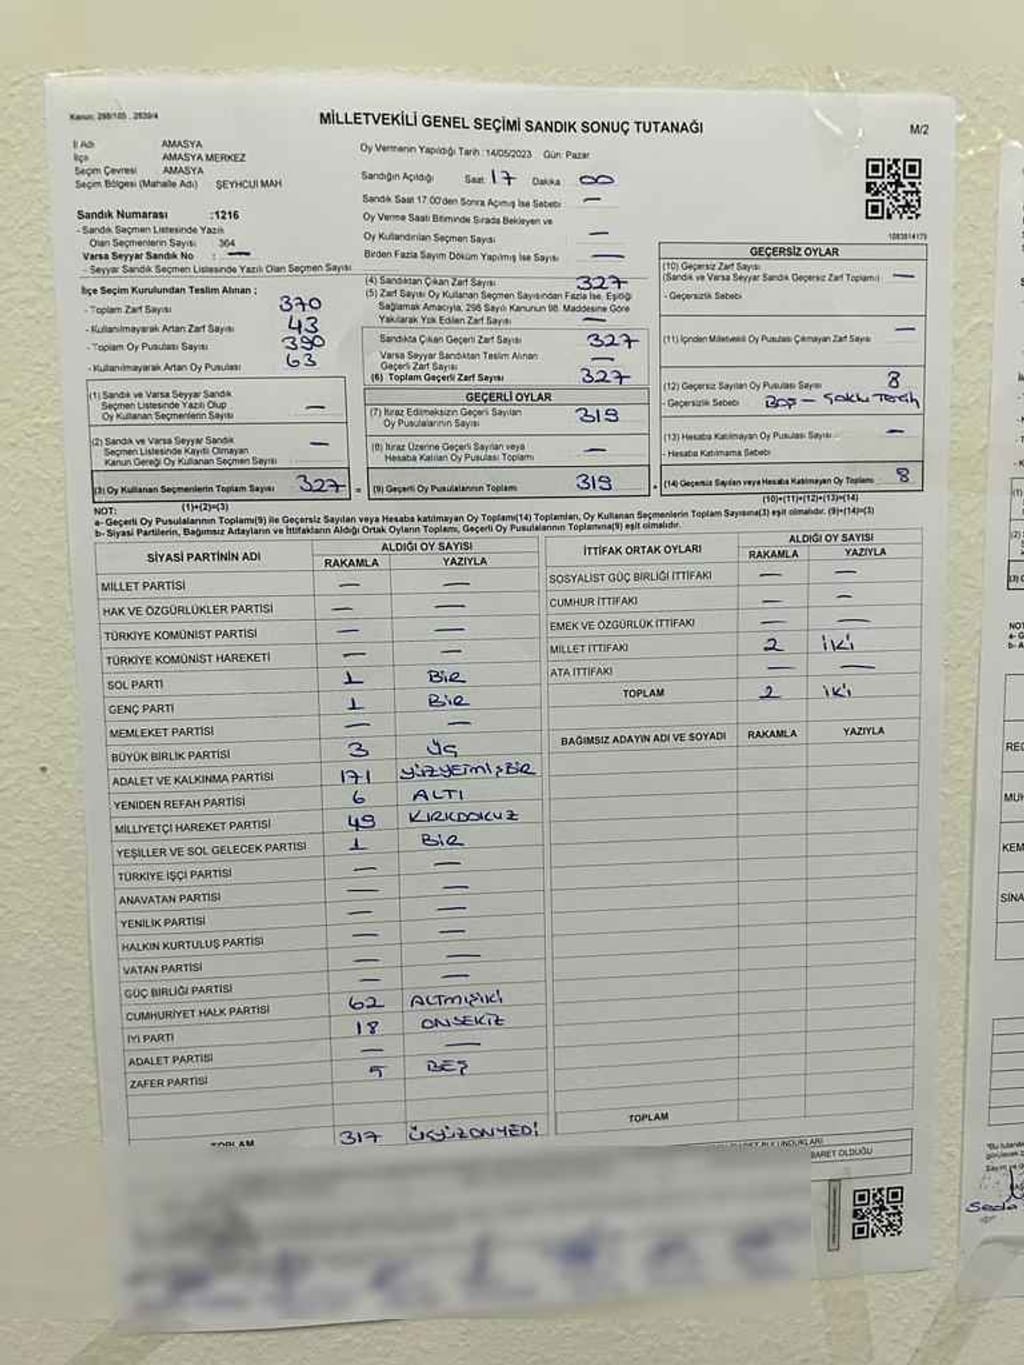 Kanun: 298/105 , 2839/4
MİLLETVEKİLİ GENEL SEÇİMİ SANDIK SONUÇ TUTANAĞI
M/2
İl Adı AMASYA
İlçe AMASYA MERKEZ
Seçim Çevresi AMASYA
Seçim Bölgesi (Mahalle Adı) ŞEYHCUİ MAH
Sandık Numarası :1216
- Sandık Seçmen Listesinde Yazılı
Olan Seçmenlerin Sayısı 364
Varsa Seyyar Sandık No : —
- Seyyar Sandık Seçmen Listesinde Yazılı Olan Seçmen Sayısı
İlçe Seçim Kurulundan Teslim Alınan :
- Toplam Zarf Sayısı 370
- Kullanılmayarak Artan Zarf Sayısı 43
- Toplam Oy Pusulası Sayısı 390
- Kullanılmayarak Artan Oy Pusulası 63
(1) Sandık ve Varsa Seyyar Sandık
Seçmen Listesinde Yazılı Olup
Oy Kullanan Seçmenlerin Sayısı —
(2) Sandık ve Varsa Seyyar Sandık
Seçmen Listesinde Kayıtlı Olmayan
Kanun Gereği Oy Kullanan Seçmen Sayısı —
(3) Oy Kullanan Seçmenlerin Toplam Sayısı 327 =
(1)+(2)=(3)
Oy Vermenin Yapıldığı Tarih :14/05/2023 Gün: Pazar
Sandığın Açıldığı Saat: 17 Dakika 00
Sandık Saat 17.00'den Sonra Açılmış İse Sebebi —
Oy Verme Saati Bitiminde Sırada Bekleyen ve
Oy Kullandırılan Seçmen Sayısı —
Birden Fazla Sayım Döküm Yapılmış İse Sayısı —
(4) Sandıktan Çıkan Zarf Sayısı 327
(5) Zarf Sayısı Oy Kullanan Seçmen Sayısından Fazla İse, Eşitliği
Sağlamak Amacıyla, 298 Sayılı Kanunun 98. Maddesine Göre
Yakılarak Yok Edilen Zarf Sayısı —
Sandıkta Çıkan Geçerli Zarf Sayısı 327
Varsa Seyyar Sandıktan Teslim Alınan
Geçerli Zarf Sayısı —
(6) Toplam Geçerli Zarf Sayısı 327
GEÇERLİ OYLAR
(7) İtiraz Edilmeksizin Geçerli Sayılan
Oy Pusulalarının Sayısı 319
(8) İtiraz Üzerine Geçerli Sayılan veya
Hesaba Katılan Oy Pusulası Toplamı —
(9) Geçerli Oy Pusulalarının Toplamı 319 +
1083814179
GEÇERSİZ OYLAR
(10) Geçersiz Zarf Sayısı
(Sandık ve Varsa Seyyar Sandık Geçersiz Zarf Toplamı) —
- Geçersizlik Sebebi
(11) İçinden Milletvekili Oy Pusulası Çıkmayan Zarf Sayısı —
(12) Geçersiz Sayılan Oy Pusulası Sayısı 8
- Geçersizlik Sebebi Boş -
(13) Hesaba Katılmayan Oy Pusulası Sayısı —
- Hesaba Katılmama Sebebi
(14) Geçersiz Sayılan veya Hesaba Katılmayan Oy Toplamı 8
(10)+(11)+(12)+(13)=(14)
NOT:
a- Geçerli Oy Pusulalarının Toplamı(9) ile Geçersiz Sayılan veya Hesaba katılmayan Oy Toplamı(14) Toplamları, Oy Kullanan Seçmenlerin Toplam Sayısına(3) eşit olmalıdır. (9)+(14)=(3)
b- Siyasi Partilerin, Bağımsız Adayların ve İttifakların Aldığı Ortak Oyların Toplamı, Geçerli Oy Pusulalarının Toplamına(9) eşit olmalıdır.
SİYASİ PARTİNİN ADI ALDIĞI OY SAYISI
RAKAMLA YAZIYLA
MİLLET PARTİSİ — —
HAK VE ÖZGÜRLÜKLER PARTİSİ — —
TÜRKİYE KOMÜNİST PARTİSİ — —
TÜRKİYE KOMÜNİST HAREKETİ — —
SOL PARTİ 1 BİR
GENÇ PARTİ 1 BİR
MEMLEKET PARTİSİ — —
BÜYÜK BİRLİK PARTİSİ 3 ÜÇ
ADALET VE KALKINMA PARTİSİ 171 YÜZYETMİŞBİR
YENİDEN REFAH PARTİSİ 6 ALTI
MİLLİYETÇİ HAREKET PARTİSİ 49 KIRKDOKUZ
YEŞİLLER VE SOL GELECEK PARTİSİ 1 BİR
TÜRKİYE İŞÇİ PARTİSİ — —
ANAVATAN PARTİSİ — —
YENİLİK PARTİSİ — —
HALKIN KURTULUŞ PARTİSİ — —
VATAN PARTİSİ — —
GÜÇ BİRLİĞİ PARTİSİ — —
CUMHURİYET HALK PARTİSİ 62 ALTMIŞİKİ
İYİ PARTİ 18 ONSEKİZ
ADALET PARTİSİ — —
ZAFER PARTİSİ 5 BEŞ
TOPLAM 317 ÜÇYÜZONYEDİ
İTTİFAK ORTAK OYLARI ALDIĞI OY SAYISI
RAKAMLA YAZIYLA
SOSYALİST GÜÇ BİRLİĞİ İTTİFAKI — —
CUMHUR İTTİFAKI — —
EMEK VE ÖZGÜRLÜK İTTİFAKI — —
MİLLET İTTİFAKI 2 İKİ
ATA İTTİFAKI — —
TOPLAM 2 İKİ
BAĞIMSIZ ADAYIN ADI VE SOYADI RAKAMLA YAZIYLA
TOPLAM
OLDUĞU
NOT
KEM
SİNA
Seda